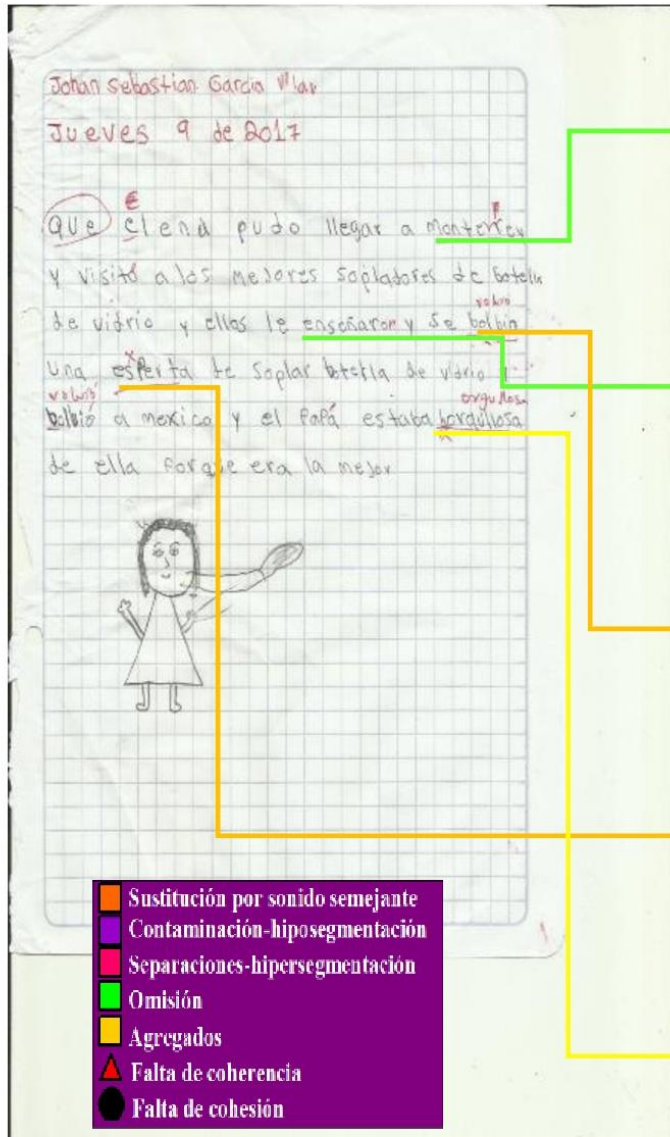 Johan Sebastian Garcia Vilar
Jueves 9 de 2017
e r
que elena pudo llegar a monterrey
y visitó a los mejores sopladores de botella
volvio
de vidrio y ellos le enseñaron y se bolbio
x
una esperta te soplar botella de vidrio y
volvió orgullosa
bolbió a mexico y el Papá estaba horgullosa
de ella Porque era la mejor
Sustitución por sonido semejante
Contaminación-hiposegmentación
Separaciones-hipersegmentación
Omisión
Agregados
Falta de coherencia
Falta de cohesión